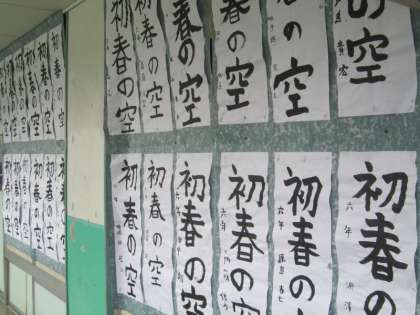 初春の空
初春の空
初春の空
初春の空
初春の空
初春の空
初春の空
初春の空
初春の空
初春の空
初春の空
初春の空
初春の空
春の空
の空
の空
の空
貴宏
初春の空
初春の空
初春の空
六年
初春の空
六年
初春の空
六年
初春の
六年